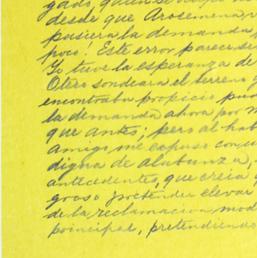 gado, quien se
desde que Arosemena,
pasiera la demanda
poco! Este error parece ser
Yo tuve la esperanza de
Otero sondeara el terreno y
encontraba propicio
la demanda ahora por
que antes; pero al
amigo me expuso con
digna de alabanza,
antecedentes, que creía
goroso pretender elevar
de la reclamación
principal, pretendiendo